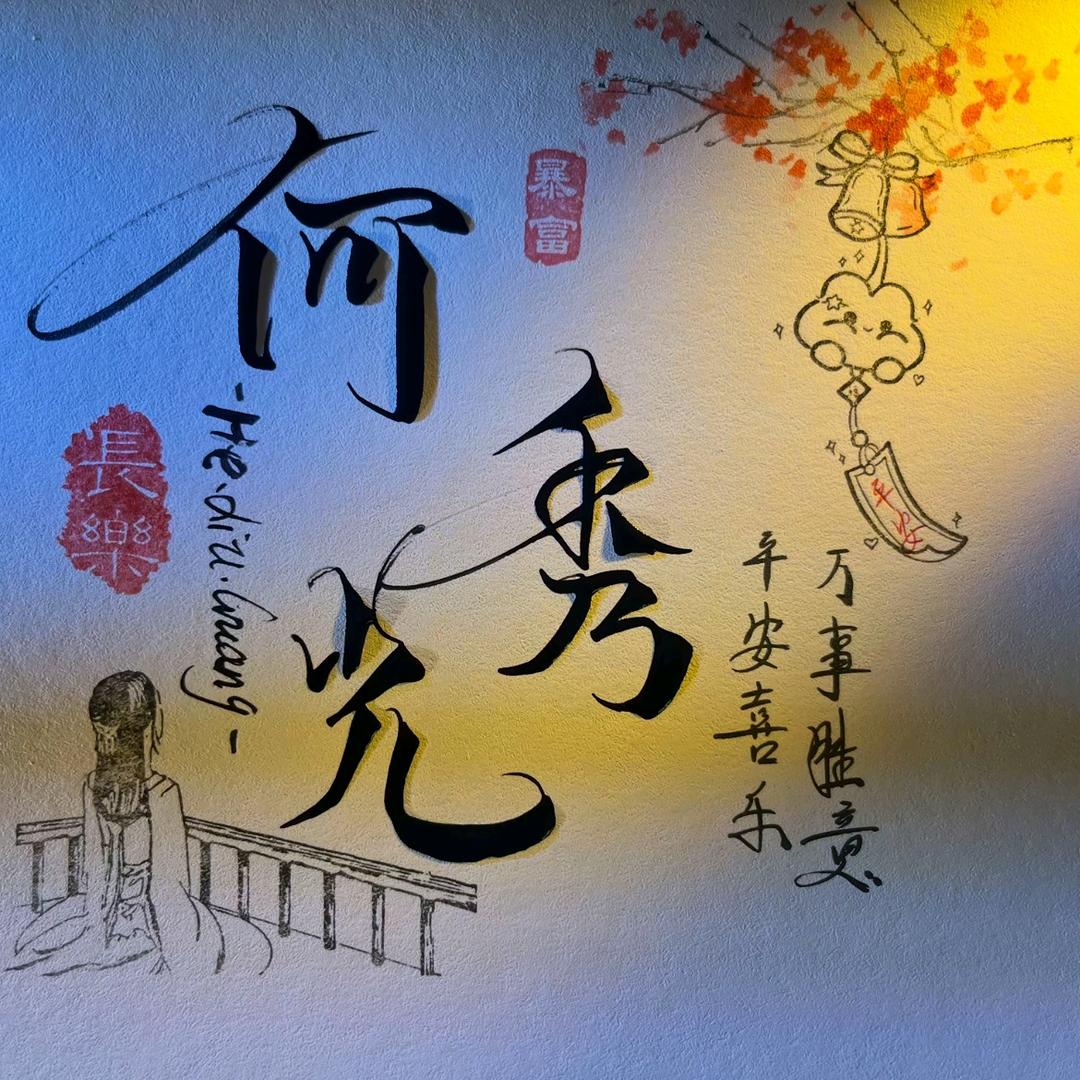 何
秀
光
-He.Xiu.Guang-
暴富
長樂
平安
万事胜意
平安喜乐